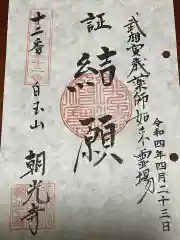 武相寅歳薬師如来霊場
令和四年四月二十三日
証
結願
十二番
白玉山
朝光寺